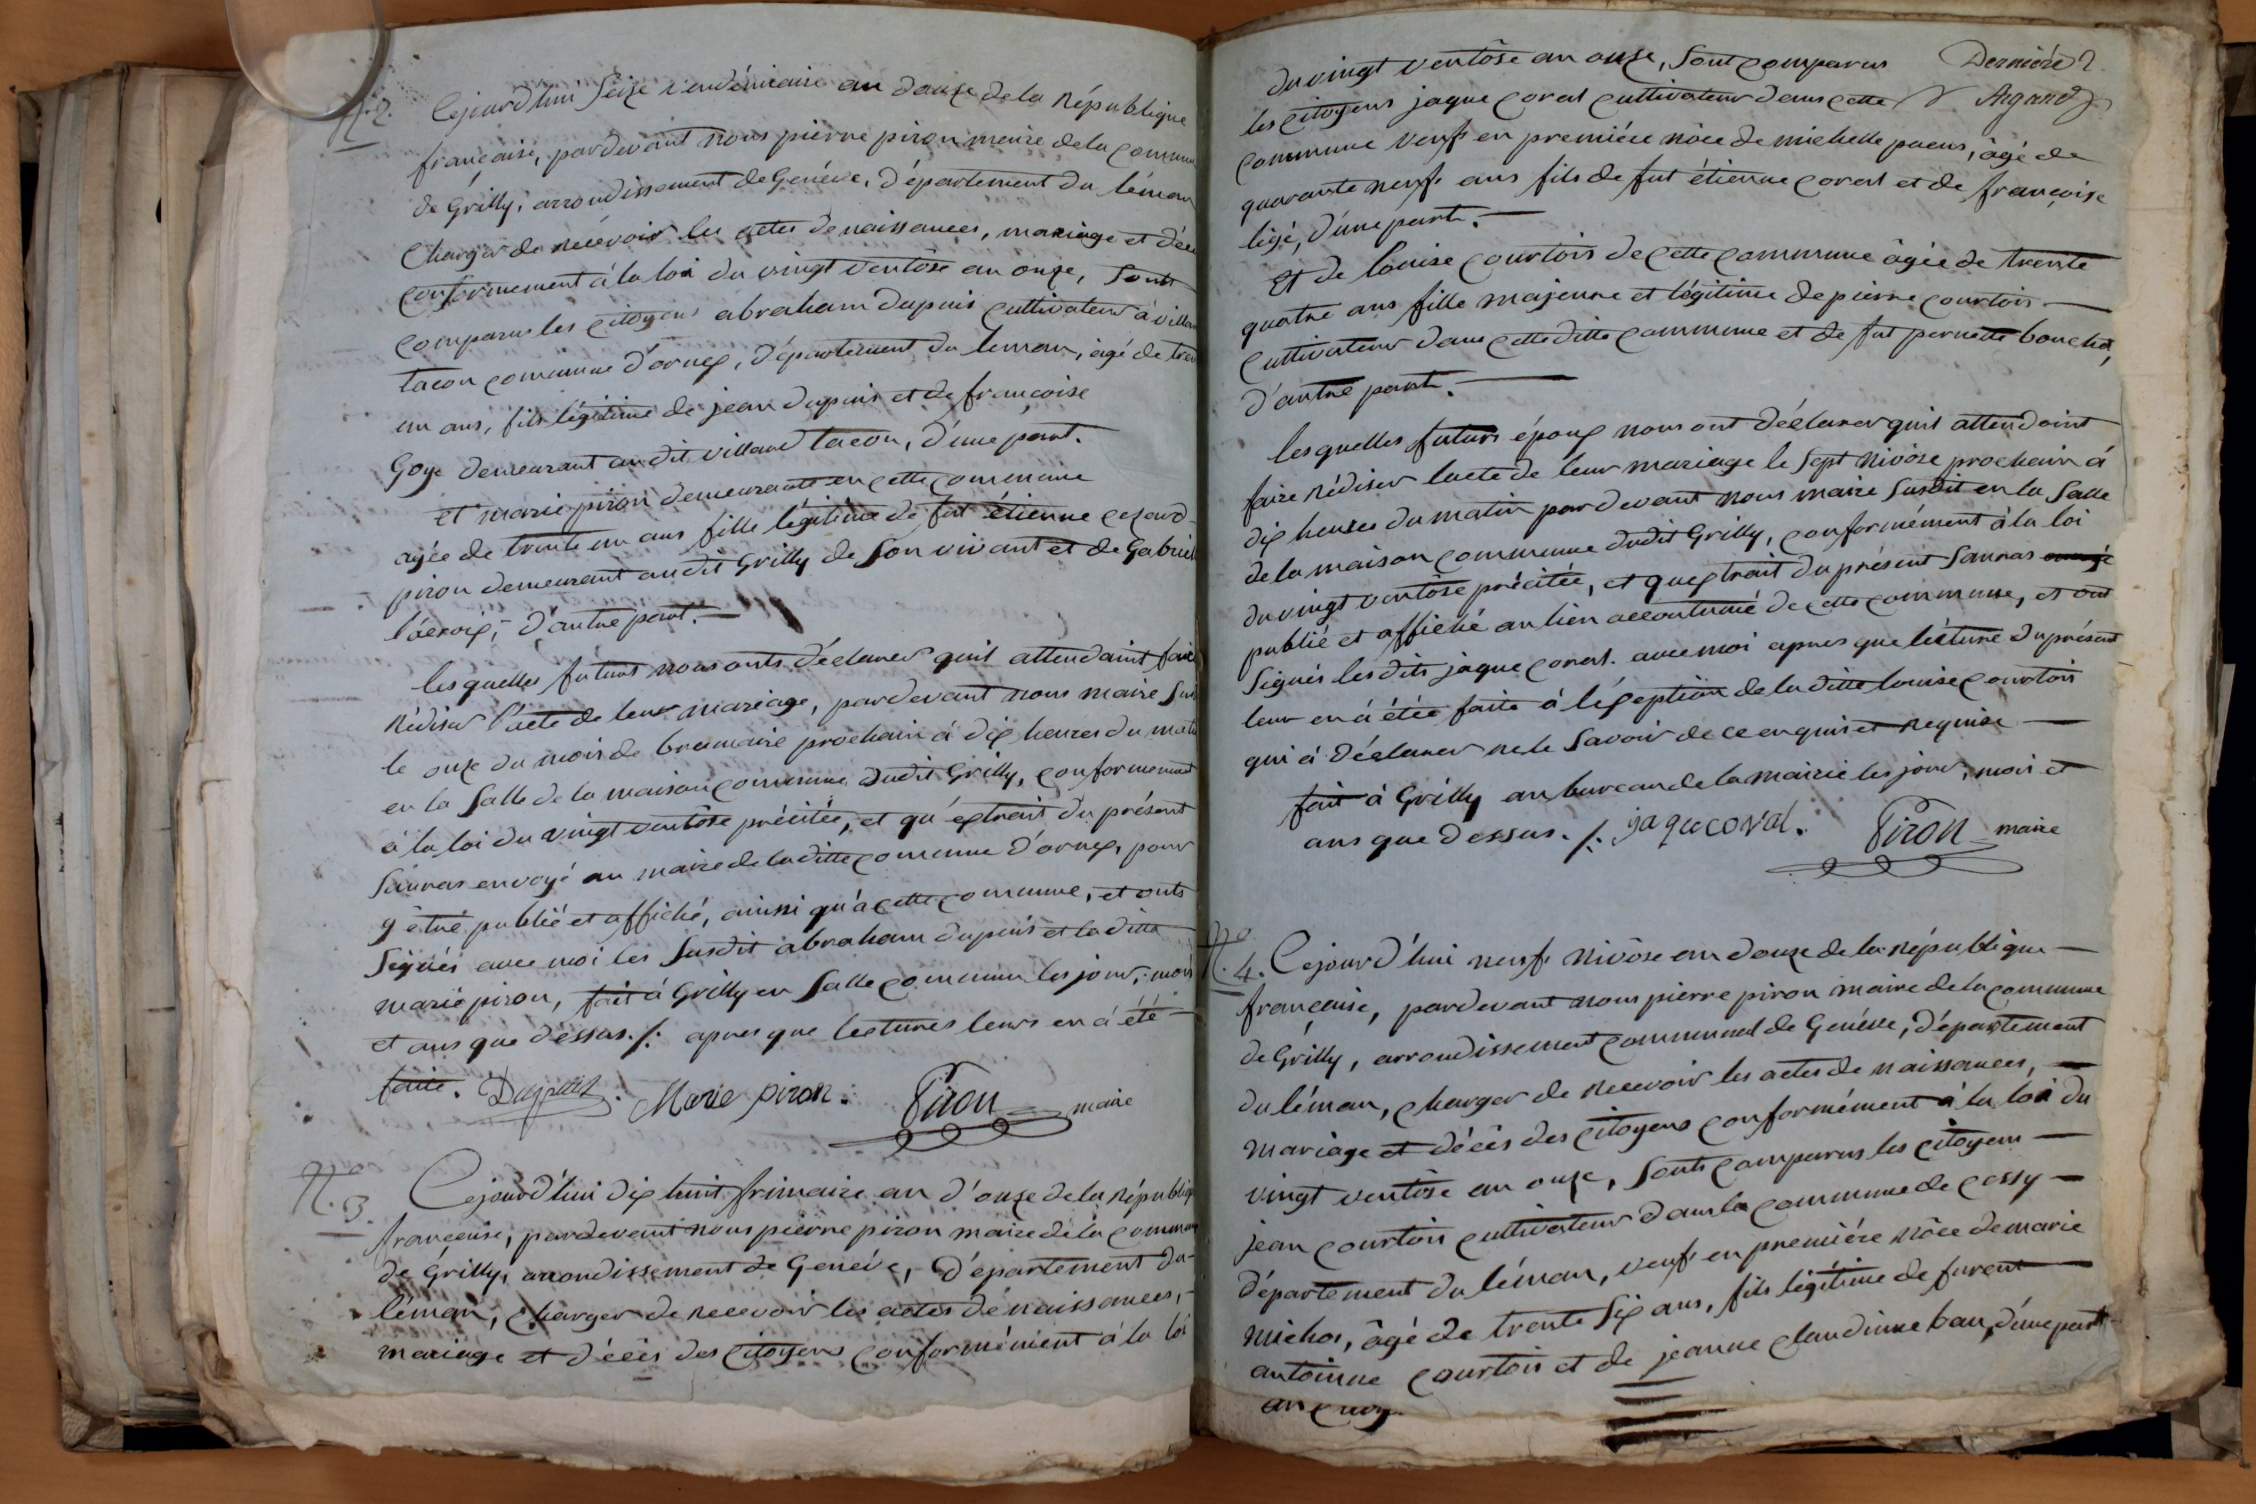 N.° 2. Cejourd'hui Seize vendémiaire an douze de la République
française, pardevant nous pierre piron maire de la commune
de Grilly, arrondissement de Genéve, département du léman
charger de recévoir les actes de naissances, mariage et déce
conformement à la loi du vingt ventôse an onze, sont
comparus les citoyens abraham dupuis cultivateur à villar
tacon commune d'ornex, département du leman, agé de tren
un ans, fils légitime de jean dupuis et de françoise
Goye demeurant audit villard tacon, d'une part.
et marie piron demeurante en cette commune
agée de trente un ans fille légitime de fut étienne
piron demeurant audit Grilly de son vivant et de Gabriel
lacroix, d'autre part. —
lesquelles futurs nous onts déclarer quil attendaint faire
rédiser l'acte de leur mariage, pardevant nous maire Sus
le onze du mois de brumaire prochain à dix heures du mati
en la Salle de la maison commune dudit Grilly, conformement
à la loi du vingt ventôse précitée, et qu'extrait du présent
Sauras envoyé au maire de la ditte commune d'ornex, pour
y être publié et affiché, ainsi qu'à cette commune, et onts
Signés avec moi les Susdit abraham dupuis et la ditte
marie piron, fait à Grilly en Salle commune les jour, mois
et ans que dessus ./. apres que lectures leurs en à été —
faite. Dupuis. Marie piron. Piron maire
N.° 3. Cejourd'hui dix huit frimaire an d'ouze de la républiq
française, pardevant nous pierre piron maire de la commun
de Grilly, arrondissement de Genéve, département du
léman, charger de recevoir les actes de naissances,
mariage et décés des citoyens conformément à la loi
du vingt ventôse an onze, sont comparus
Derniére 2.
les citoyens jaque coral cultivateur dans cette
Argand
commune veuf en premiére nôce de michelle paeus, âgé de
quarante neuf ans fils de fut étienne coral et de françoise
ligé, d'une part. —
et de louise courtois de cette commune âgée de trente
quatre ans fille majeure et légitime de pierre courtois —
cultivateur dans cette ditte commune et de fut pernette bouchet,
d'autre part. —
lesquelles futurs époux nous ont déclarer quil attendoint
faire rédiser lacte de leur mariage le sept Nivôse prochain à
dix heures du matin pardevant nous maire Susdit en la Salle
de la maison commune dudit Grilly, conformément à la loi
du vingt ventôse précitée, et quextrait du présent Sauras
publié et affiché au lieu accoutumé de cette commune, et ont
Signés les dits jaque coral. avec moi apres que lécture du présent
leur en à étée faite à léxeption de la ditte louise courtois
qui à déclarer ne le Savoir de ce enquis et requise —
fait à Grilly au bureau de la mairie les jour, mois et
ans que dessus. /. jaque coral. Piron maire
N.° 4. Cejourd'hui neuf Nivôse an douze de la république —
française, pardevant nous pierre piron maire de la commune
de Grilly, arrondissement communal de Genéve, département
du léman, charger de recevoir les actes de naissances, —
mariage et décés des citoyens conformément à la loi du
vingt ventôse an onze, Sonts comparus les citoyens —
jean courtois cultivateur dans la commune de cessy —
département du léman, veuf en premiére nôce de marie
michos, âgé de trente Six ans, fils légitime de furent —
antoinne courtois et de jeanne claudinne bau, d'une part